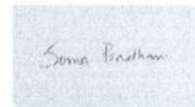 Soma Pradhan